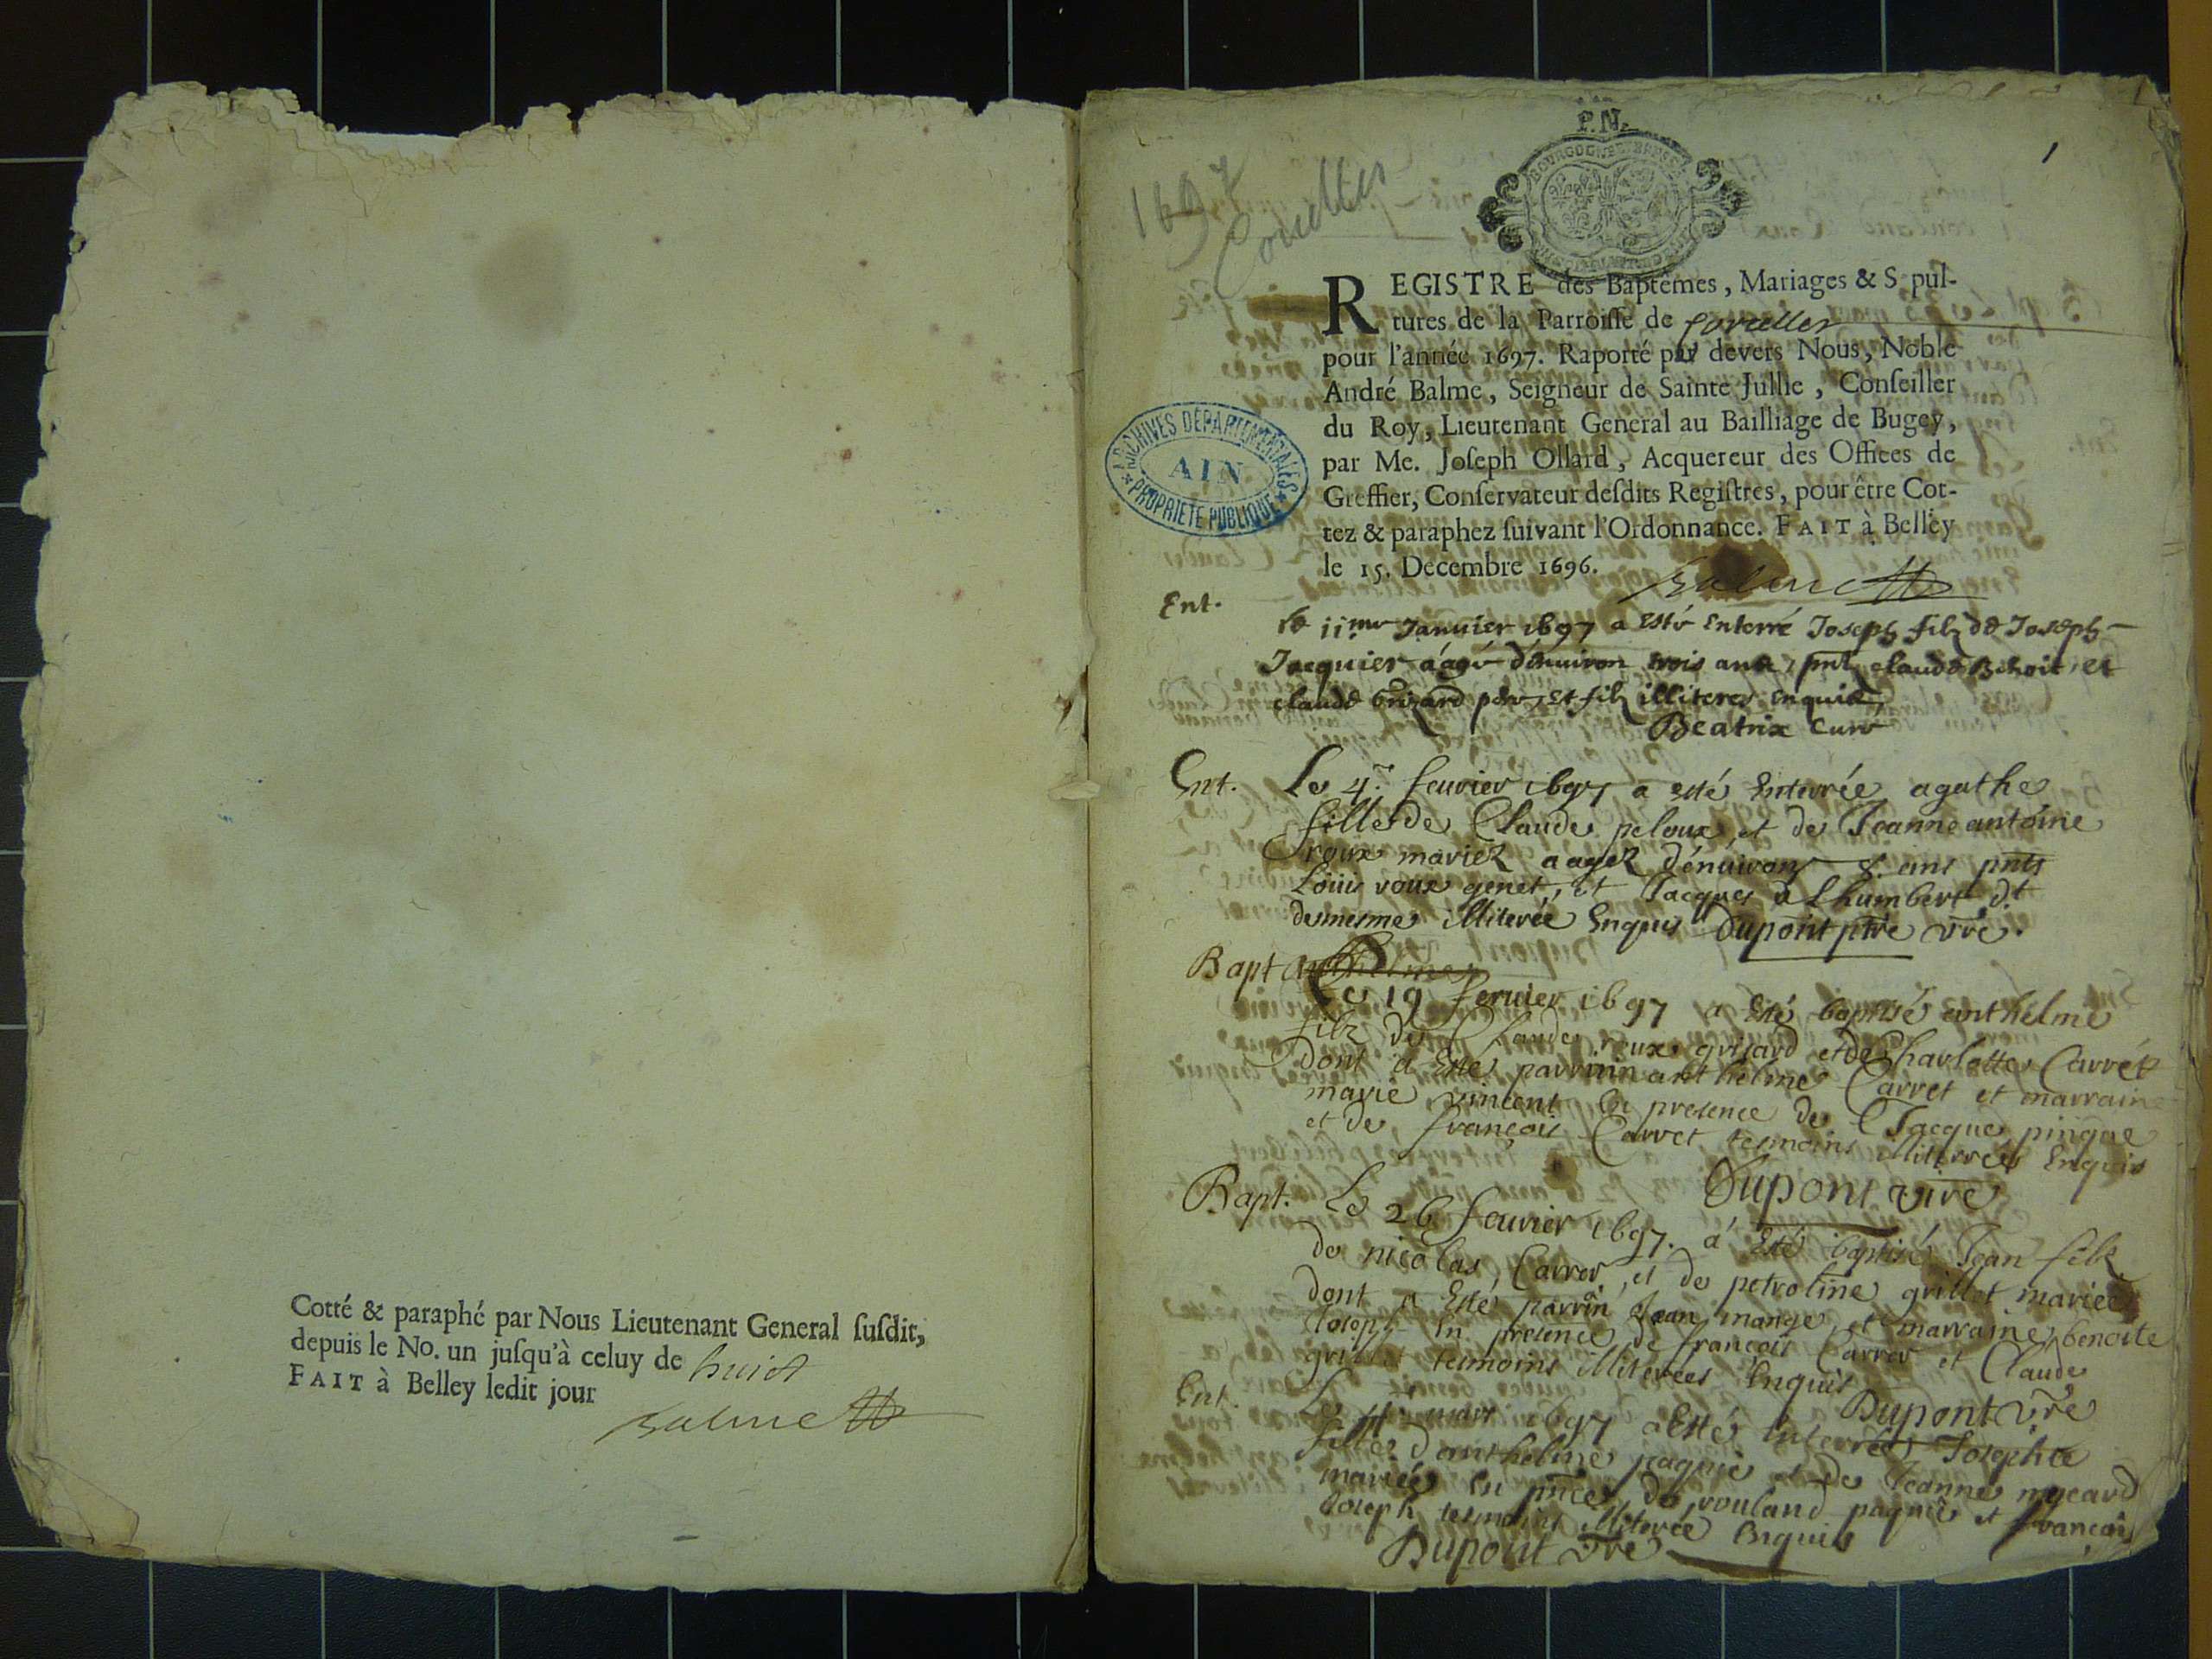 Cotté & paraphé par Nous Lieutenant General ſuſdit,
depuis le No. un juſqu'à celuy de huict
FAIT à Belley ledit jour
Balme
1
P.N.
1697
Corcelles
REGISTRE des Baptêmes, Mariages & S pul-
tures de la Parroiſſe de Corcelles
pour l'année 1697. Raporté par devers Nous, Noble
André Balme, Seigneur de Sainte Jullie, Conſeiller
du Roy, Lieutenant General au Bailliage de Bugey,
par Me. Joſeph Ollard, Acquereur des Offices de
Greffier, Conſervateur deſdits Regiſtres, pour être Cot-
tez & paraphez ſuivant l'Ordonnance. FAIT à Belley
le 15. Decembre 1696.
Balme
ARCHIVES DÉPARTEMENTALES
AIN
PROPRIÉTÉ PUBLIQUE
Ent.
le 11.me Janvier 1697 a esté enterré Joseph filz de Joseph
Jacquier aagé d'enuiron trois ans, pnts claude Benoit, et
claude grizard pere, et filz illiteres enquis,
Beatrix Curé
Ent. Le 4.e feurier 1697 a esté enterrée agathe
fille de Claude peloux et de Jeanne antoine
roux mariez aagez d'énuiron 8. ans pnts
Loüis roux genet, et Jacques à Lhumbert d.t
demesme illiterée enquis Dupont ptre vre.
Bapt
Le 19 feruier 1697 a esté baptisé anthelme
filz de Claude roux grisard et de Charlotte Carret
dont a esté parrain anthelme Carret et marraine
marie vincent en presence de Jacque pingue
et de françois Carret tesmoins illiterées enquis
Dupont vire
Bapt. Le 26 feurier 1697. a esté baptisé Jean filz
de nicolas Carrer, et de petroline grillet mariez
dont a esté parrin Jean mange, et marraine benoite
Joseph en presence de françois Carrer et Claude
grillet tesmoins illiterées enquis
Dupont vre
Ent. mars 1697 a esté enterrée Josephte
fille d'anthelme pagnie et de Jeanne mycard
mariées en pnce de rouland pagnie et françois
Joseph tesmoins illiterée enquis
Dupont vre